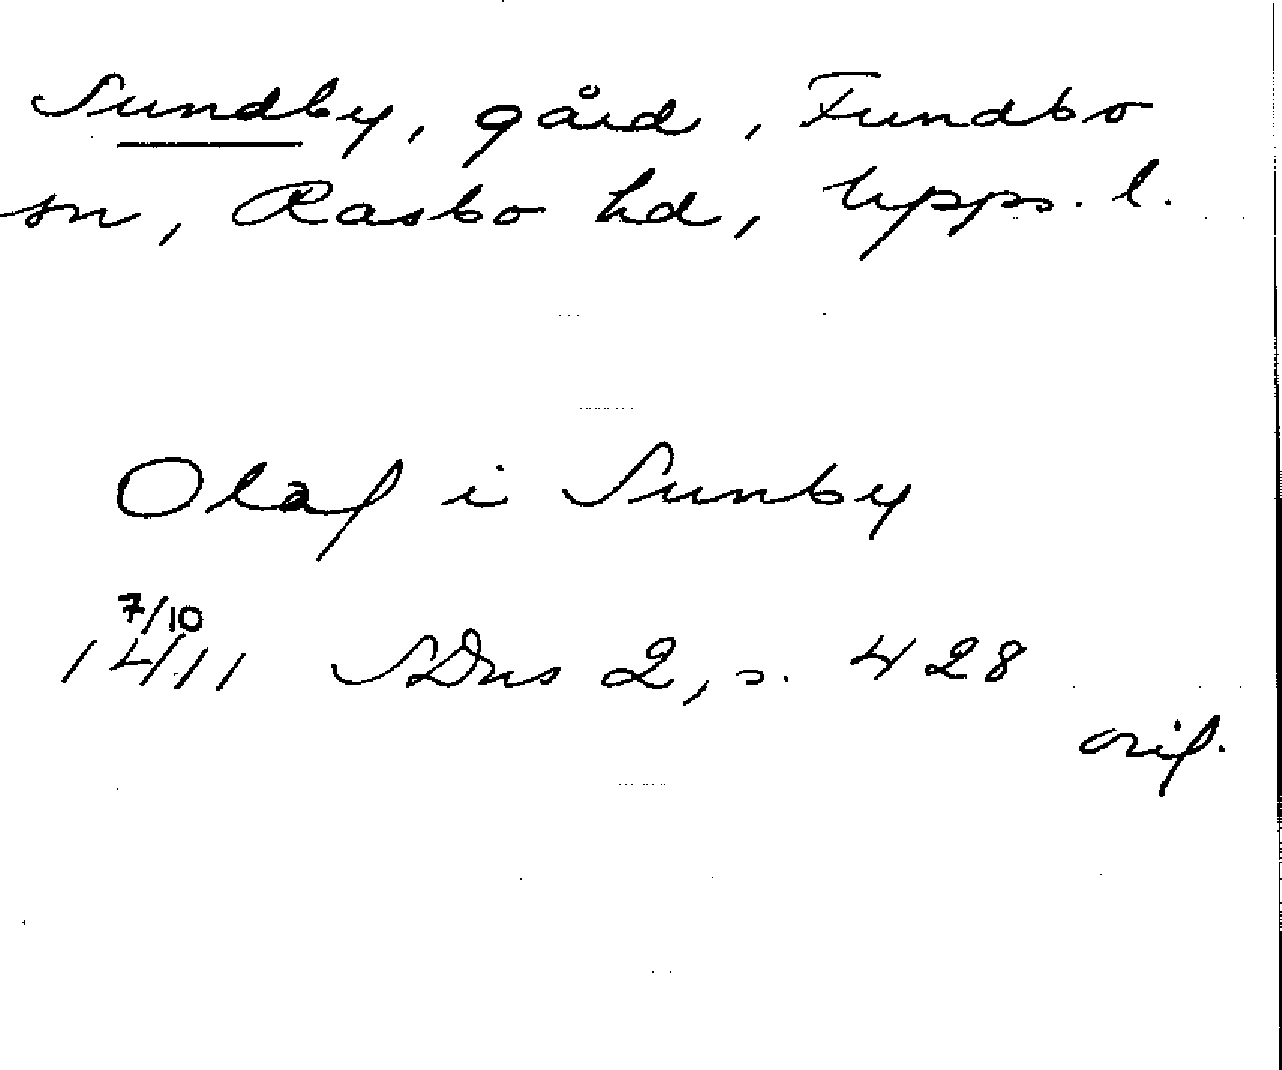 Sundby, gård, Fundbo
sn, Rasbo hd, Upps. l.
Olaf i Sunby
7/10
1411 SDns 2, s. 428
orig.